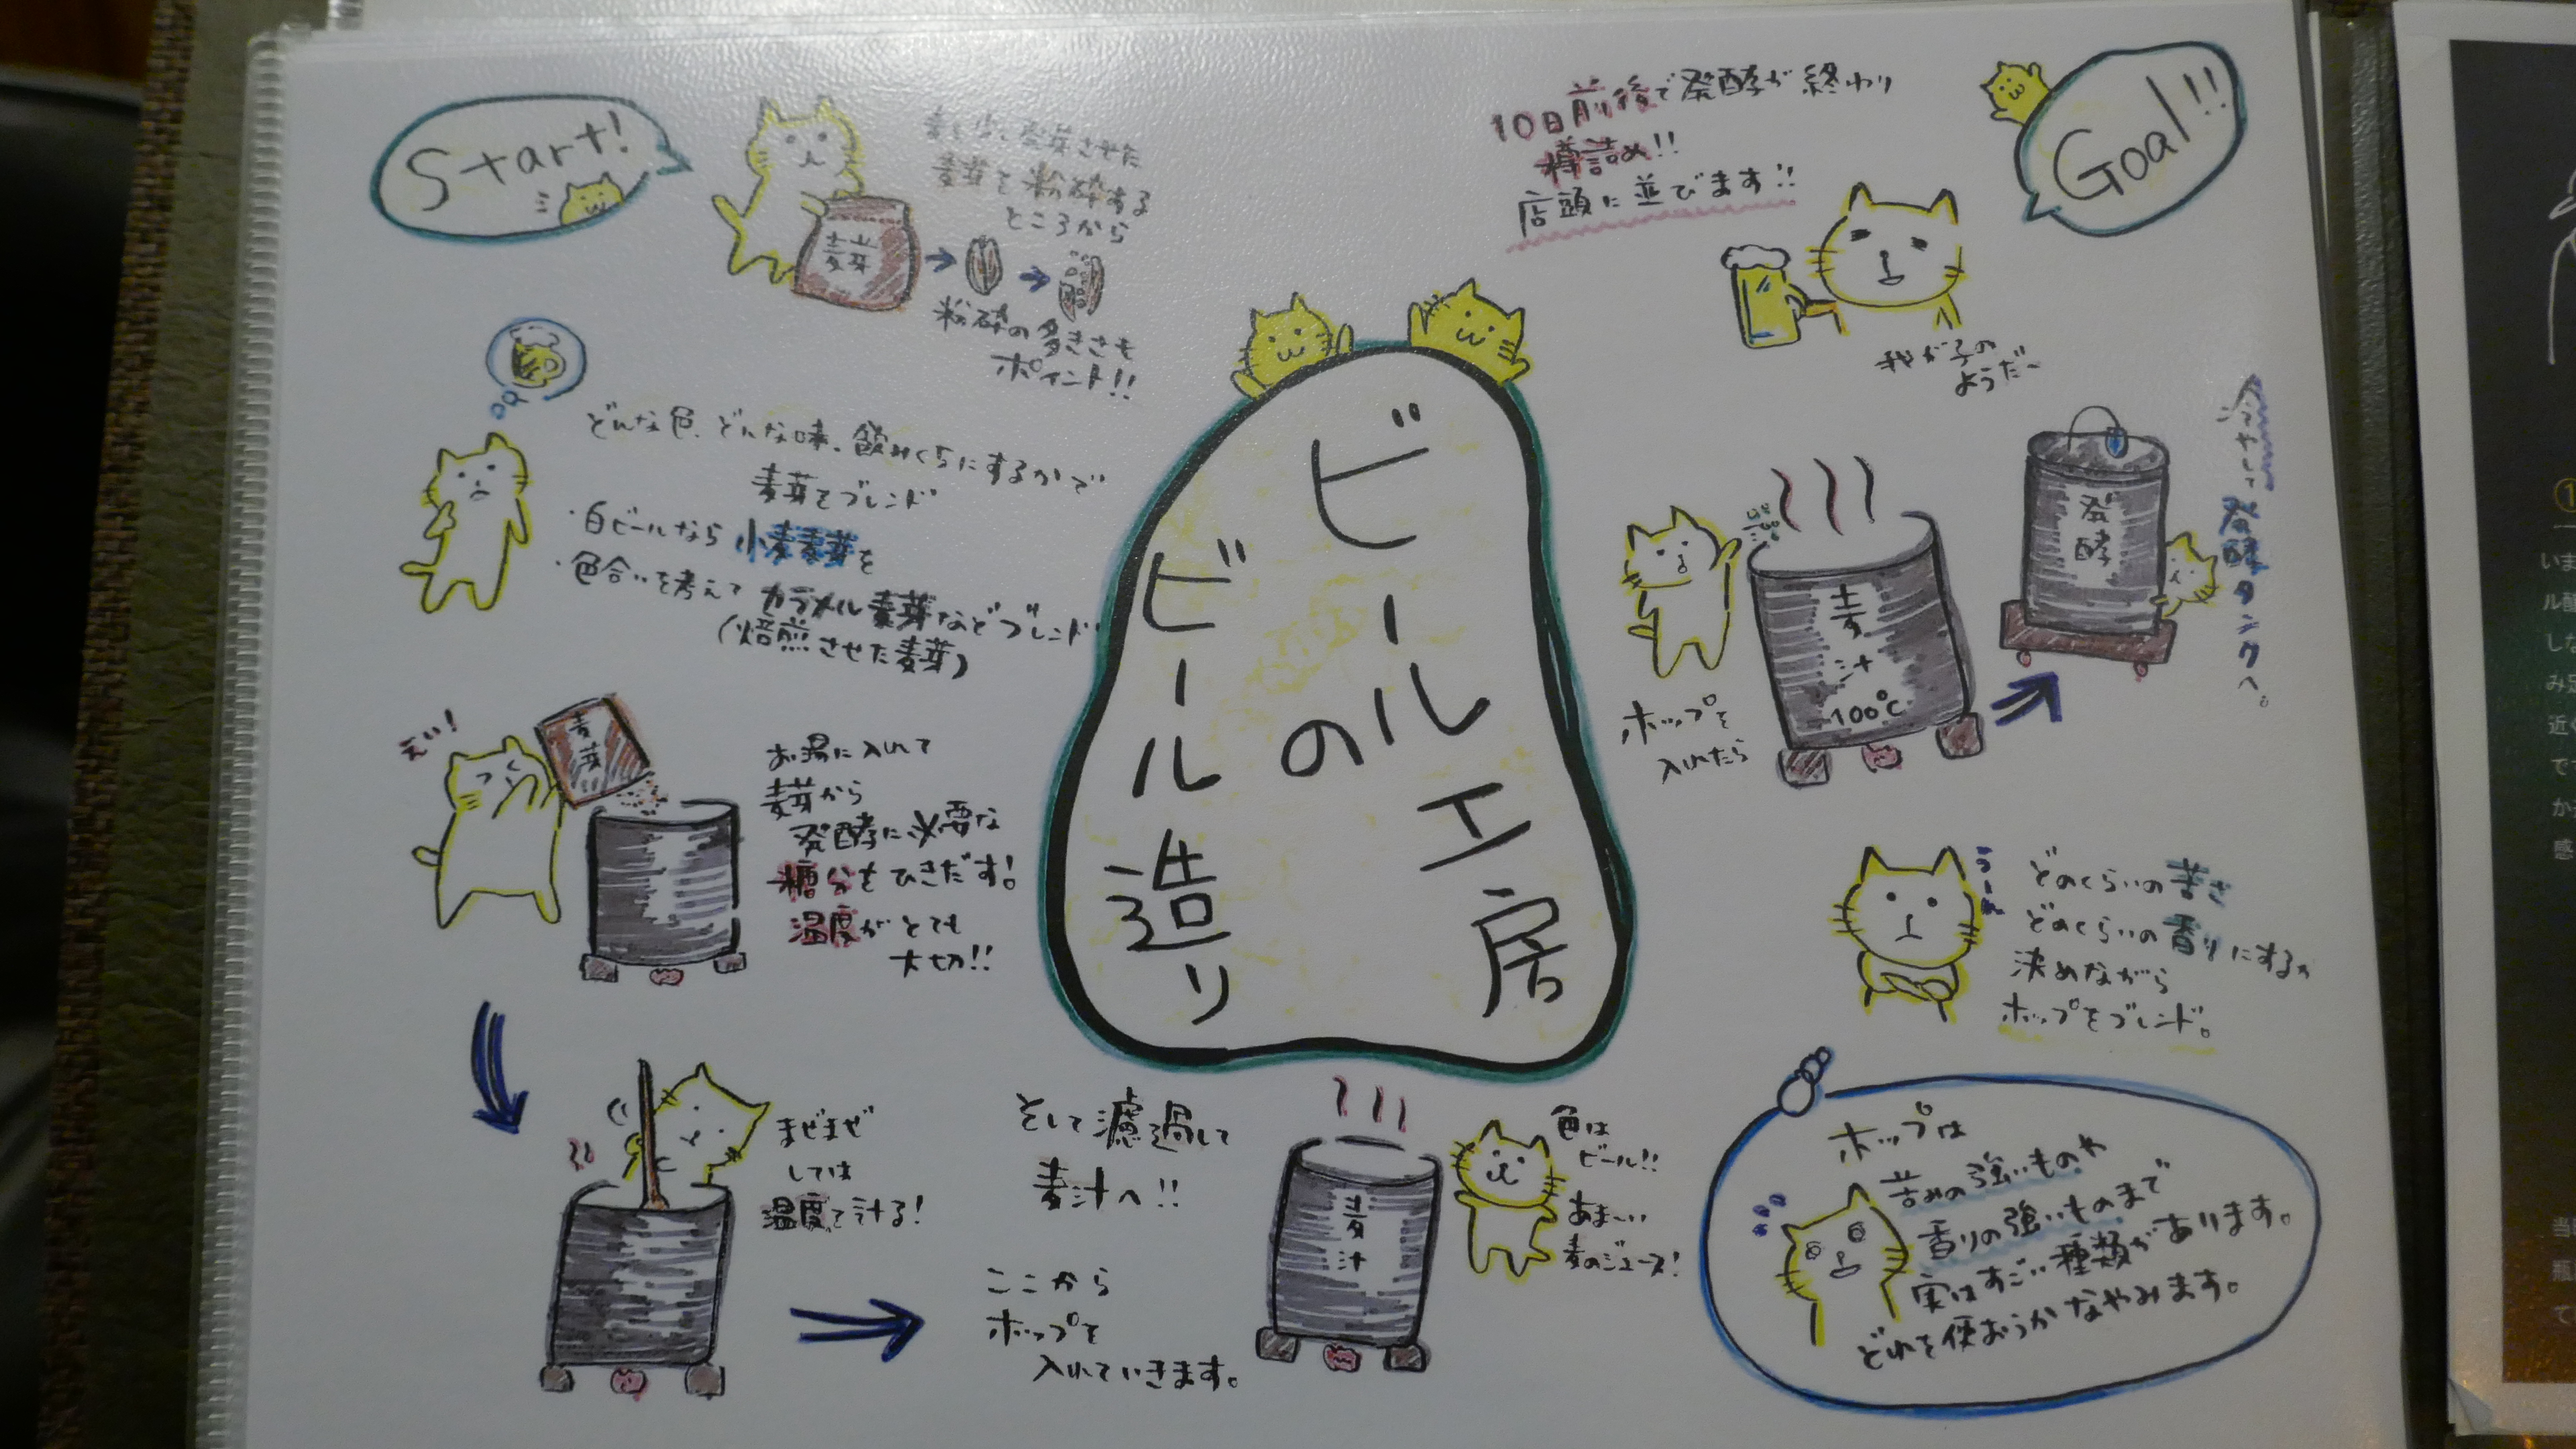 Start!
まず少し発芽させた
麦芽を粉砕する
ところから
麦芽
粉砕の多きさも
ポイント!!
どんな色、どんな味、飲みくちにするかで
麦芽をブレンド
・白ビールなら小麦麦芽を
・色合いを考えてカラメル麦芽などブレンド
(焙煎させた麦芽)
えい!
麦芽
お湯に入れて
麦芽から
発酵に必要な
糖分をひきだす!
温度がとても
大切!!
まぜまぜ
しては
温度を計る!
そして濾過して
麦汁へ!!
ここから
ホップを
入れていきます。
麦汁
色は
ビール!!
あま〜い
麦のジュース!
ビール工房
の
ビール造り
ホップは
苦みの強いものや
香りの強いものまで
実はすごい種類があります。
どれを使おうかなやみます。
うーん
どのくらいの苦さ
どのくらいの香りにするか
決めながら
ホップをブレンド。
ホップを
入れたら
麦汁
100℃
発酵
冷やして発酵タンクへ。
10日前後で発酵が終わり
樽詰め!!
店頭に並びます!!
我が子の
ようだ〜
Goal!!